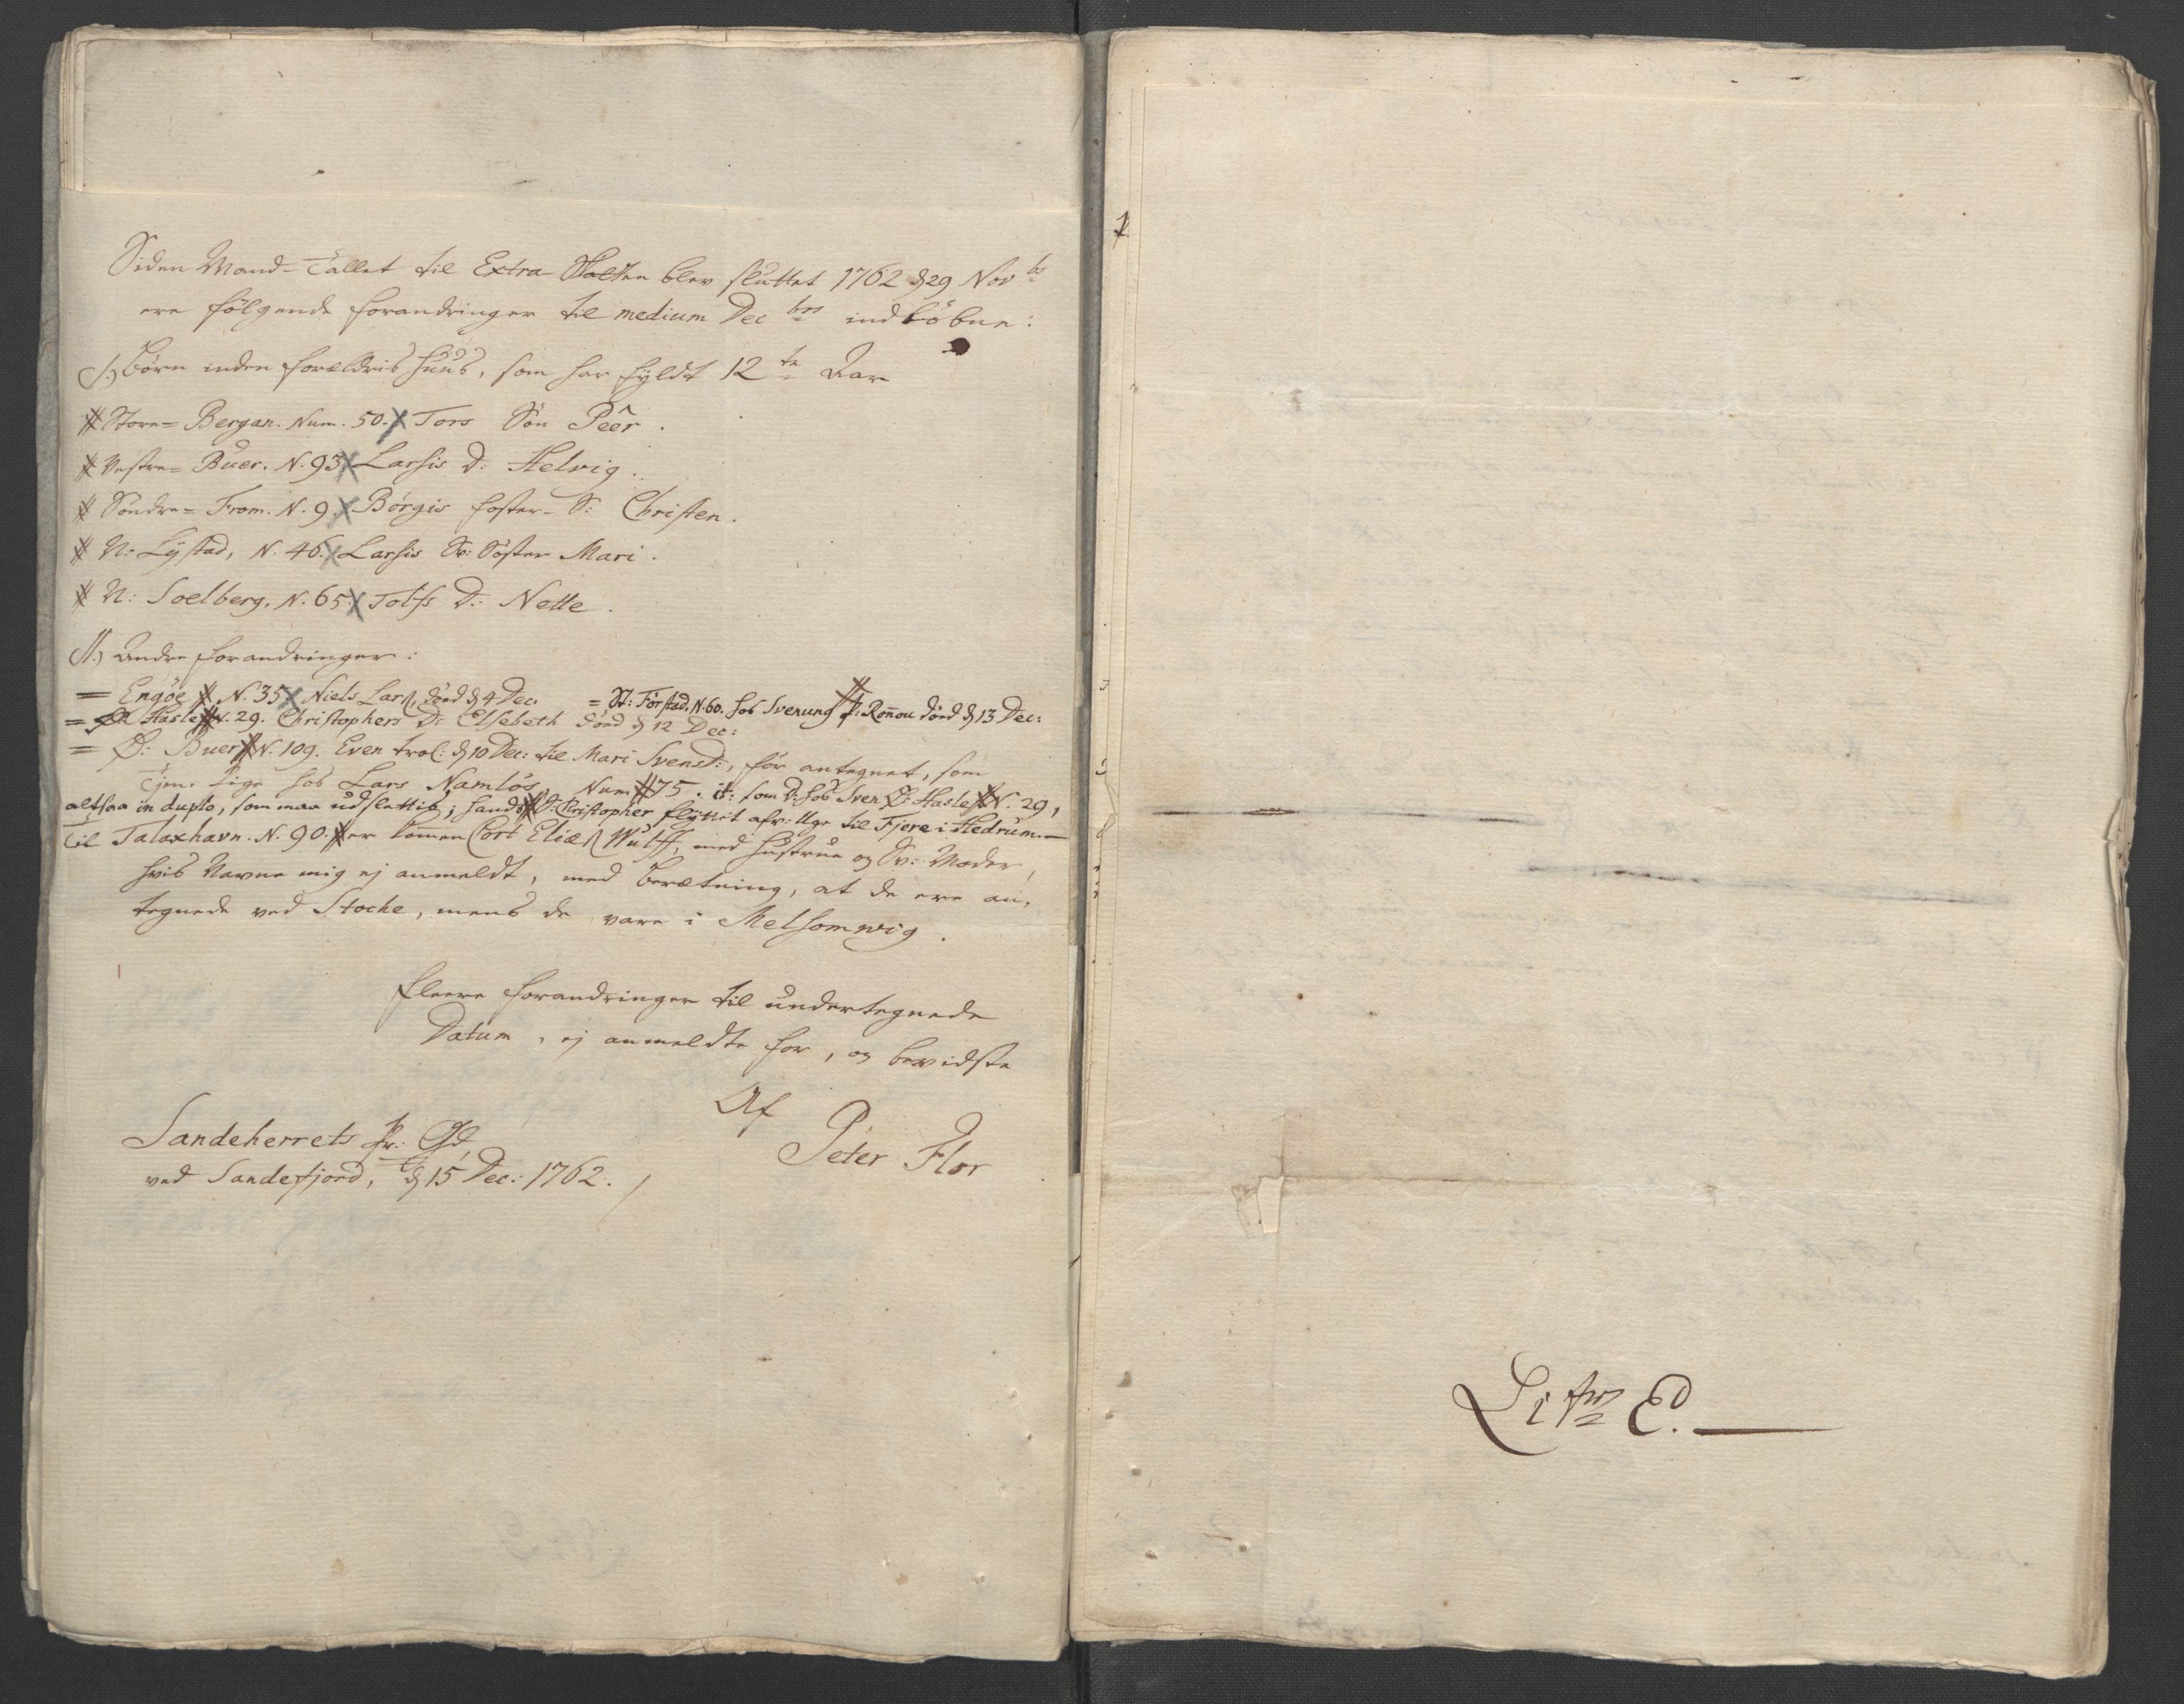 Siden Mand-Tallet til Extra Skatten blev sluttet 1762 d 29 Novbr
ere følgende forandringer til medium Decbris indløbne:
I.) Børn inden forældris Huus, som har fyldt 12te Aar
Store= Bergan. Num. 50. Tors Søn Peêr.
Vestre= Buer. N. 93. Larsis D: Helvig.
Søndre= From. N. 9. Børgis foster-S: Christen.
N: Lystad, N. 46. Larsis Sv: Søster Mari.
N: Soelberg. N. 65. Tolfs D: Nette.
II.) Andre forandringer:
= Engöe N. 35. Niels Lars. død d 4 Dec. = St: Førstad. N. 60. hos Svenung Roñou død d 13 Dec:
= Hasle N. 29. Christophers D: Elsebeth død d 12 Dec:
= Ø: Buer N. 109. Even trol: d 10 Dec: til Mari Svensd:, før antegnet, som
Tjen: Pige hos Lars Namløs Num 75. it: som D: hos Sven Ø: Hasle N. 29,
altsaa in duplo, som maa udslettis; hands D: Christopher flyttet afv: Uge til Fjere i Hedrum.
Til Talaxhavn. N. 90. er kom̃en Cort Elias Wulff, med Hustrue og Sv: Moder,
hvis Navne mig ej anmeldt, med Beretning, at de ere an-
tegnede ved Stocke, mens de vare i Melsomvig.
Fleere forandringer til undertegnede
Datum, ej anmeldte for, og bevidste
Af
Peter Flor
Sandeherrets Pr: Gd,
ved Sandefjord, d 15 Dec: 1762.
Litra E.